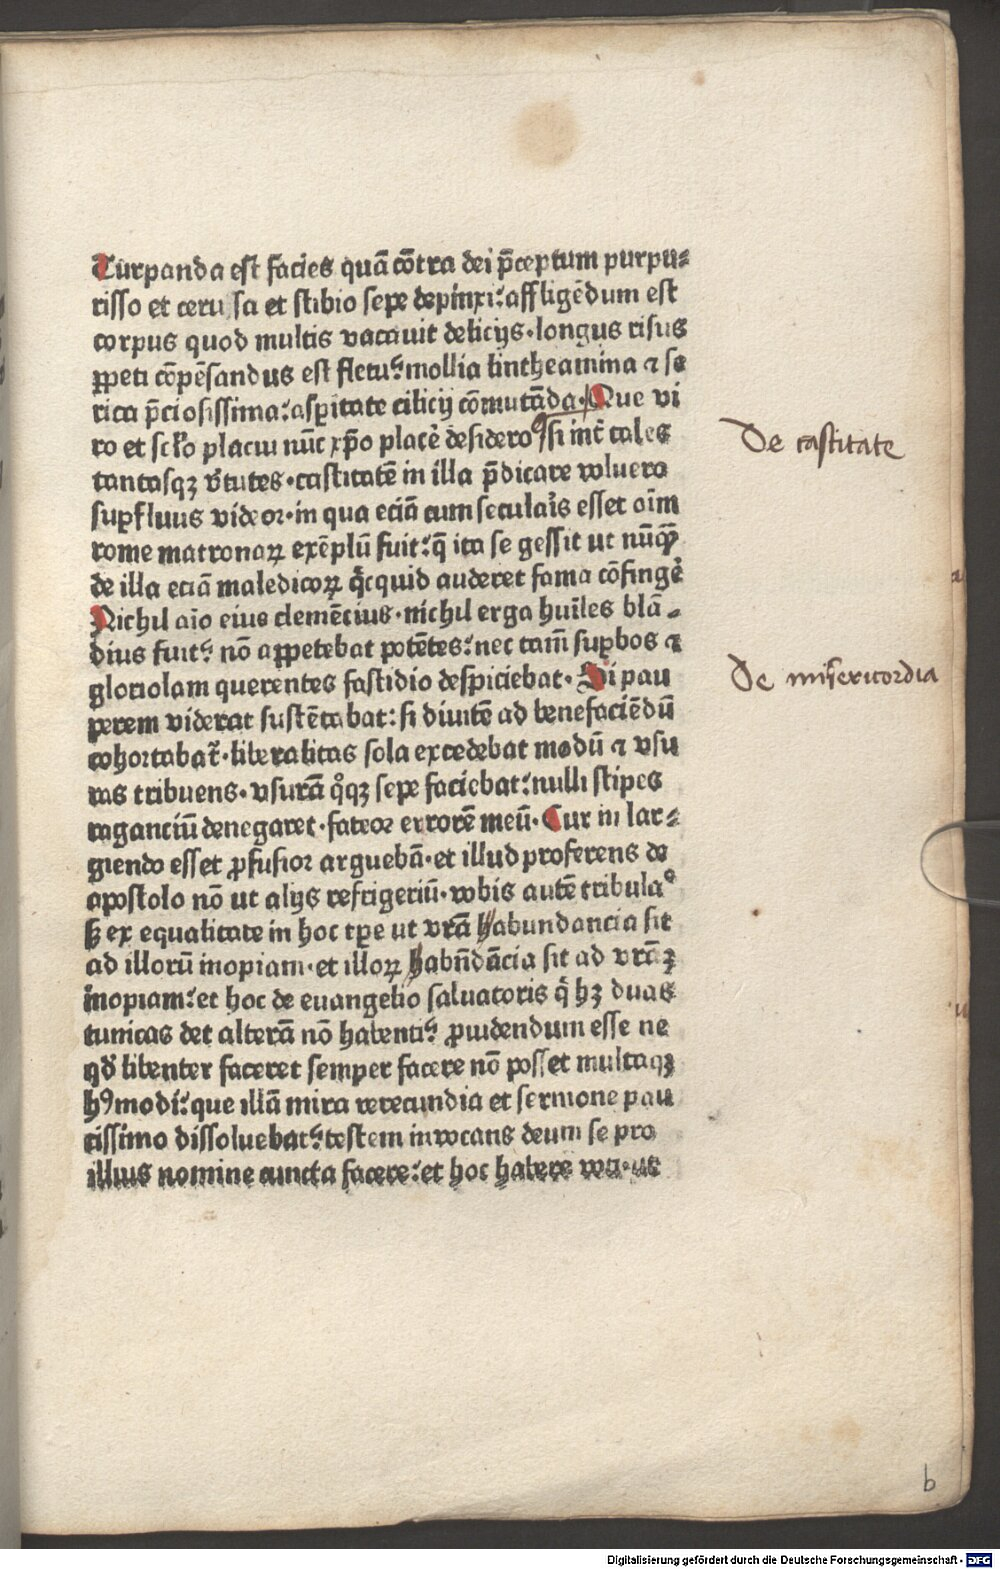 Turpanda est facies quā cōtra dei p̄ceptum purpu⸗
risso et ceru sa et stibio sepe depinxi: affligēdum est
corpus quod multis vacauit delicijs·longus risus
ꝑpeti cōpēsandus est fletu: mollia lintheamina ⁊ se
rica p̄ciosissima: asꝑitate cilicij cōmutāda· Que vi
ro et sclo placui nūc xp̄o placē desidero si int̄ tales
De castitate
tantasqꝫ v̄tutes·castitatē in illa p̄dicare voluero
suꝑfluus videor·in qua eciā cum seculaīs esset oīm
rome matronaꝝ exēplū fuit: q̄ ita se gessit ut nūqꝫ
de illa eciā maledicoꝝ q̄cquid auderet fama cōfingē
Nichil aīo eius clemēcius·nichil erga huīles blā⸗
dius fuit: nō appetebat potētes: nec tam̄ suꝑbos ⁊
gloriolam querentes fastidio despiciebat· Si pau
De misericordia
perem viderat sustētabat: si diuitē ad benefaciēdū
cohortabat̄·liberalitas sola excedebat modū ⁊ vsu
ras tribuens·vsurā q̊qꝫ sepe faciebat: nulli stipes
vaganciū denegaret·fateor errorē meū· Cur in lar⸗
giendo esset ꝓfusior arguebā·et illud proferens de
apostolo nō ut alijs refrigeriū·vobis autē tribula°
sꝫ ex equalitate in hoc tp̄e ut vrā habundancia sit
ad illorū inopiam·et illoꝝ habūdācia sit ad vrāꝫ
inopiam: et hoc de euangelio saluatoris q̄ hꝫ duas
tunicas det alterā nō habenti: ꝓuidendum esse ne
qd̄ libenter faceret semper facere nō posset multaqꝫ
hꝯmodi: que illā mira verecundia et sermone pau
cissimo dissoluebat: testem inuocans deum se pro
illius nomine cuncta facere: et hoc habere voti·ut
b
Digitalisierung gefördert durch die Deutsche Forschungsgemeinschaft - DFG